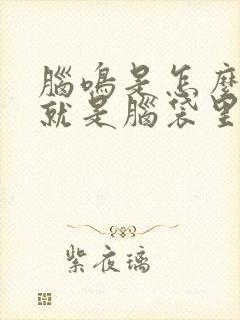 腦鳴是怎麼
就是腦袋里
紫夜璃